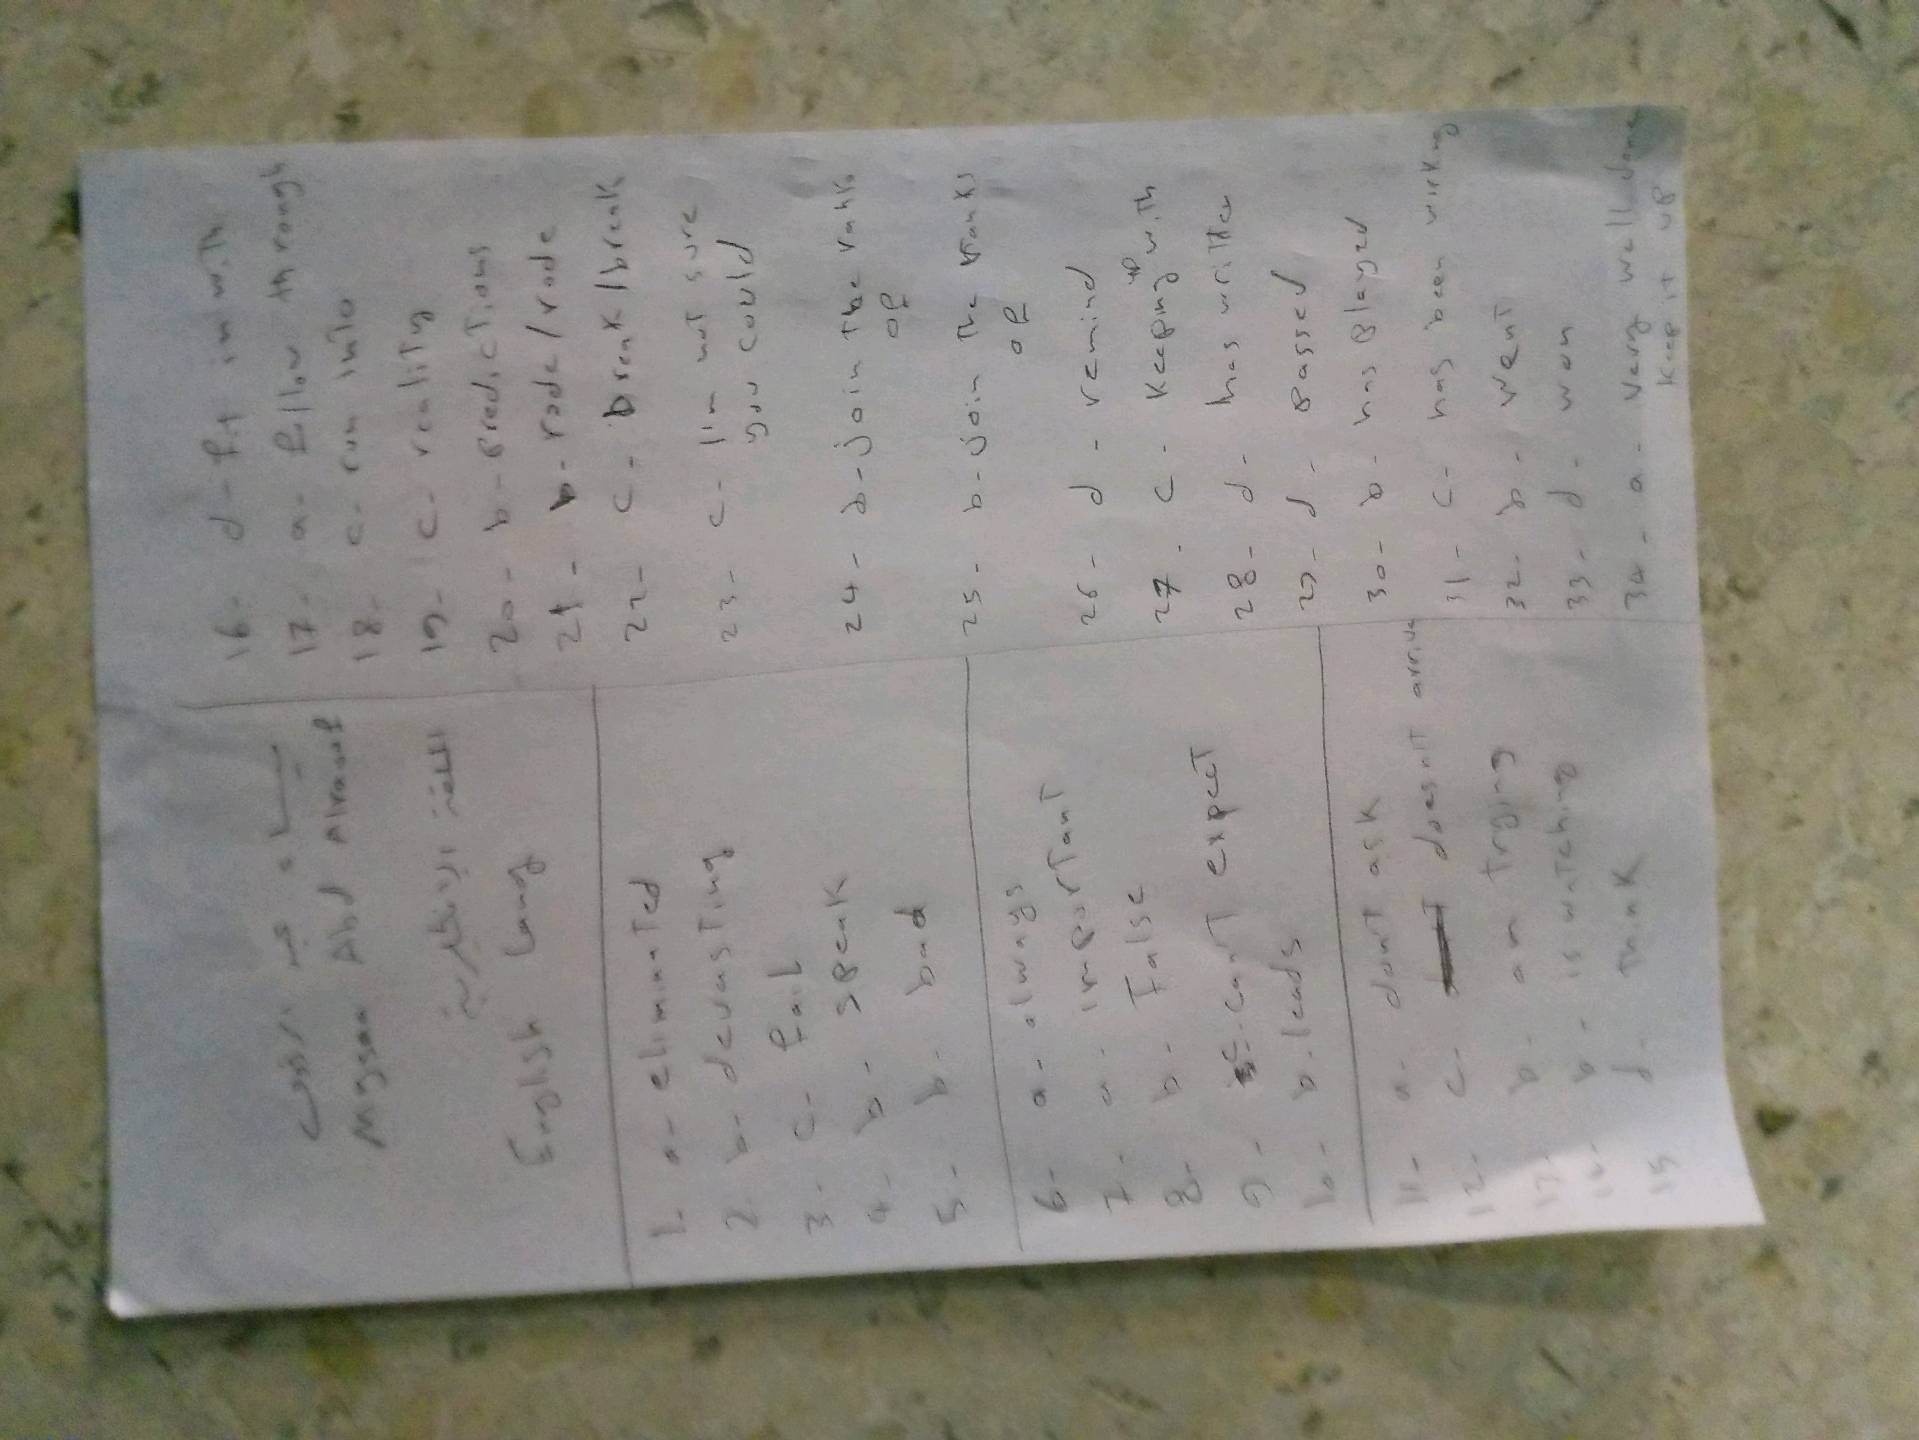 ميساء عبد الرؤوف
Maysaa Abd Alraouf
اللغة الإنكليزية
English Lang
1- a- eliminated
2- b- devasting
3- c- fail
4- b- speak
5- b- bad
6- a- always
7- a- important
8- b- False
9- c- can't expect
10- b- leads
11- a- don't ask
12- c- doesn't arrive
13- b- am trying
14- b- is watching
15 d- think
16- d- fit in with
17- a- follow through
18- c- run into
19- c- reality
20- b- predictions
21- b- rode/rode
22- c- break/break
23- c- I'm not sure
you could
24- b- join the ranks
of
25- b- join the ranks
of
26- d- remind
27- c- keeping up with
28- d- has written
29- d- passed
30- b- has played
31- c- has been wirking
32- b- went
33- d- won
34- a- very well done
keep it up